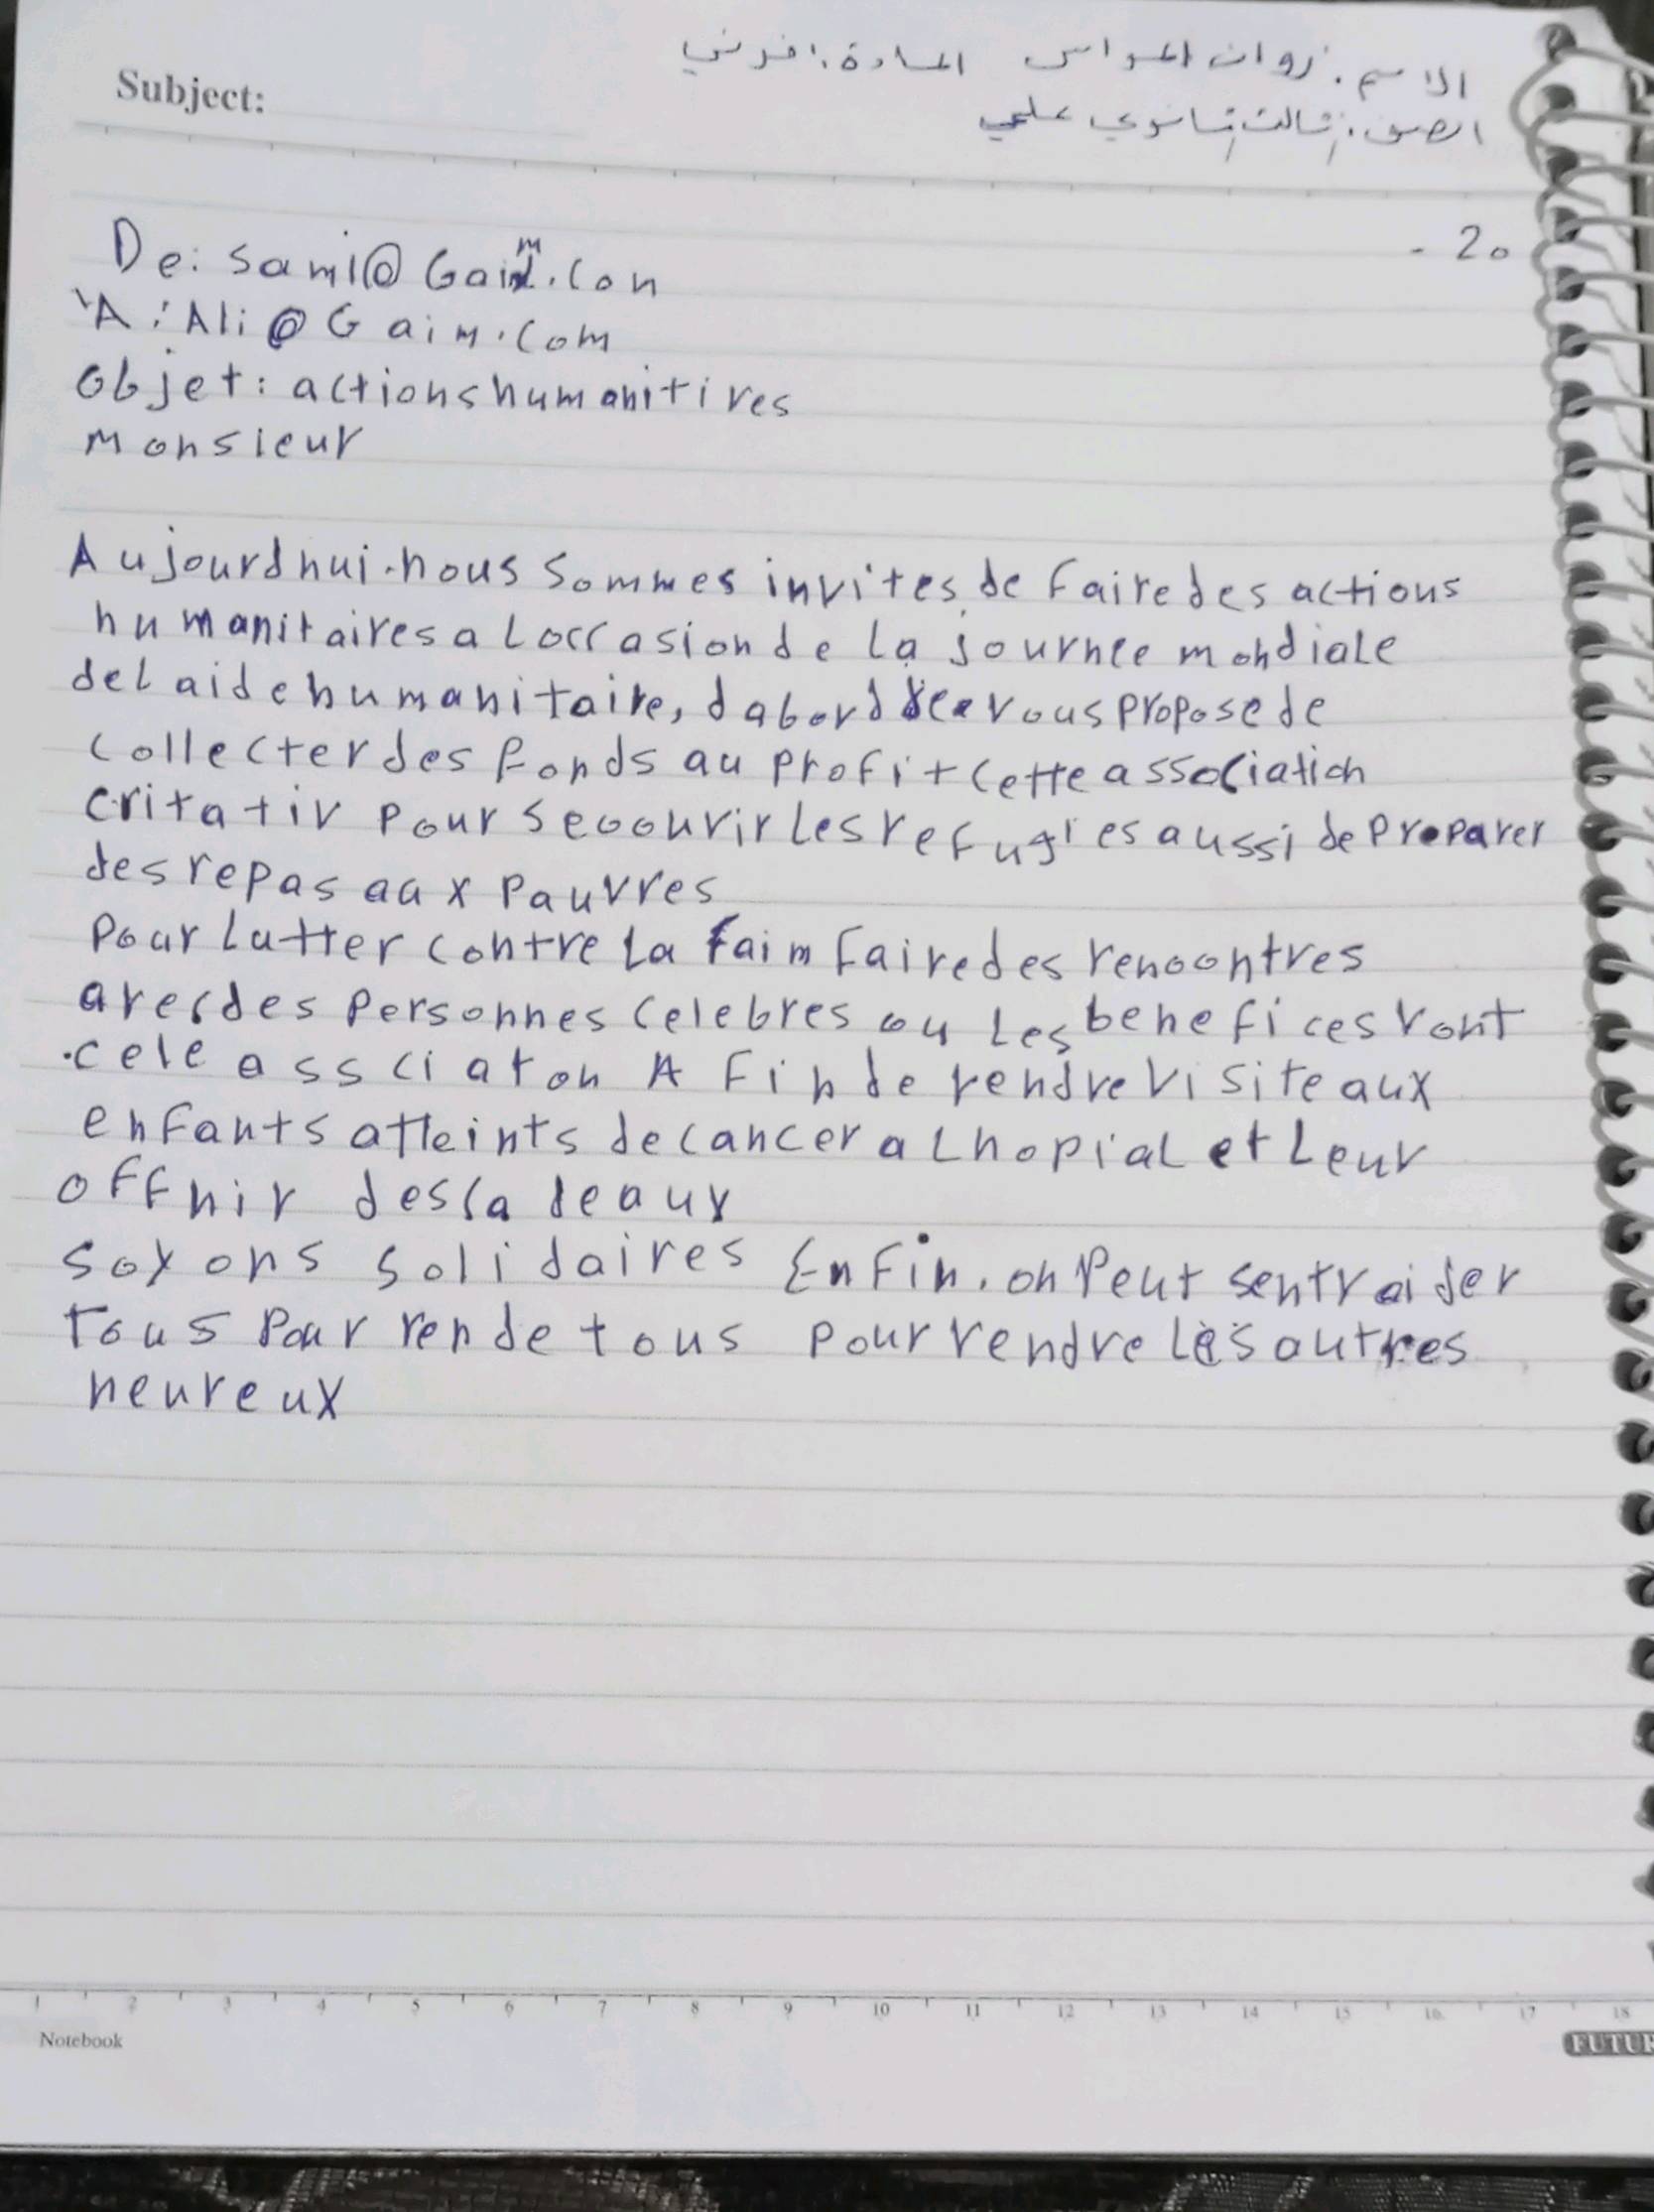 Subject:
الاسم: روان الحواس المادة: افرنسي
الصف: ثالث ثانوي علمي
- 20
De: sami@Gaim.Con
'A : Ali @ Gaim.Com
Objet: actions humanitires
Monsieur
Aujourdhui.nous sommes invites de faire des actions
humanitaires a Loccasion de La journee mondiale
del aide humanitaire, dabord vous propose de
collecter des fonds au profit cette association
critativ pour secourir Les refugies aussi de preparer
des repas aux pauvres
pour Lutter contre La faim faire des rencontres
avec des personnes celebres ou Les benefices vont
.cele assciaton A fin de rendre visite aux
enfants atteints de cancer a Lhopial et Leur
offrir des cadeaux
soyons solidaires Enfin. on peut sentraider
Tous pour rende tous pour rendre Les autres
heureux
1 2 3 4 5 6 7 8 9 10 11 12 13 14 15 16 17 18
Notebook